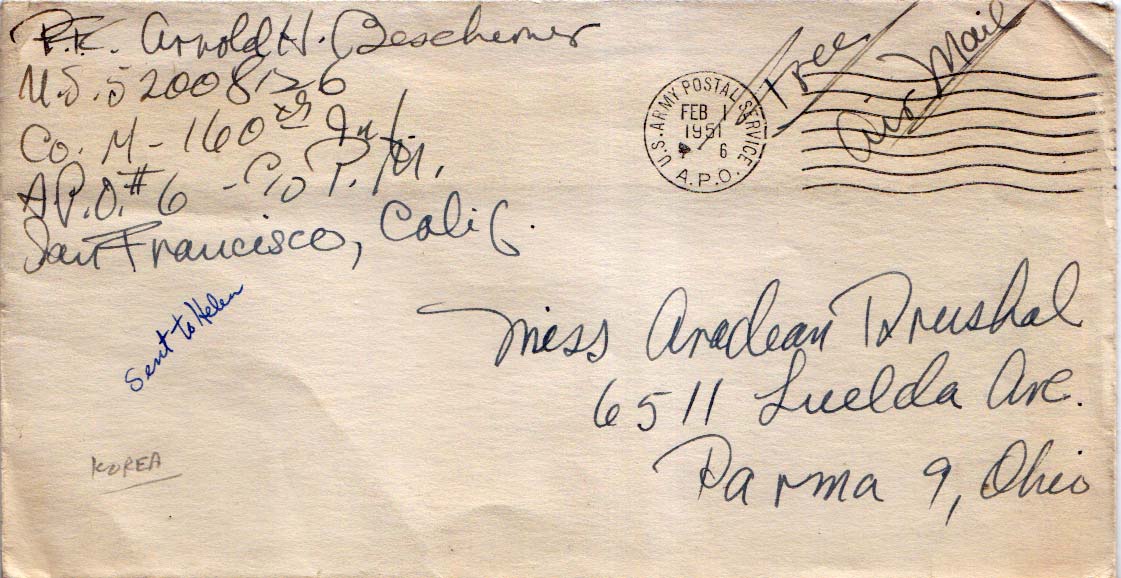 Arnold H. Beschemer
U.S. 52008126
Co. M - 160th Inf.
A.P.O. #6 - C/o P.M.
San Francisco, Calif.
U.S. ARMY POSTAL SERVICE
FEB 1
1951
6
A.P.O.
Free
Air Mail
Sent to Helen
KOREA
Miss Aradean Dreshal
6511 Luelda Ave.
Parma 9, Ohio